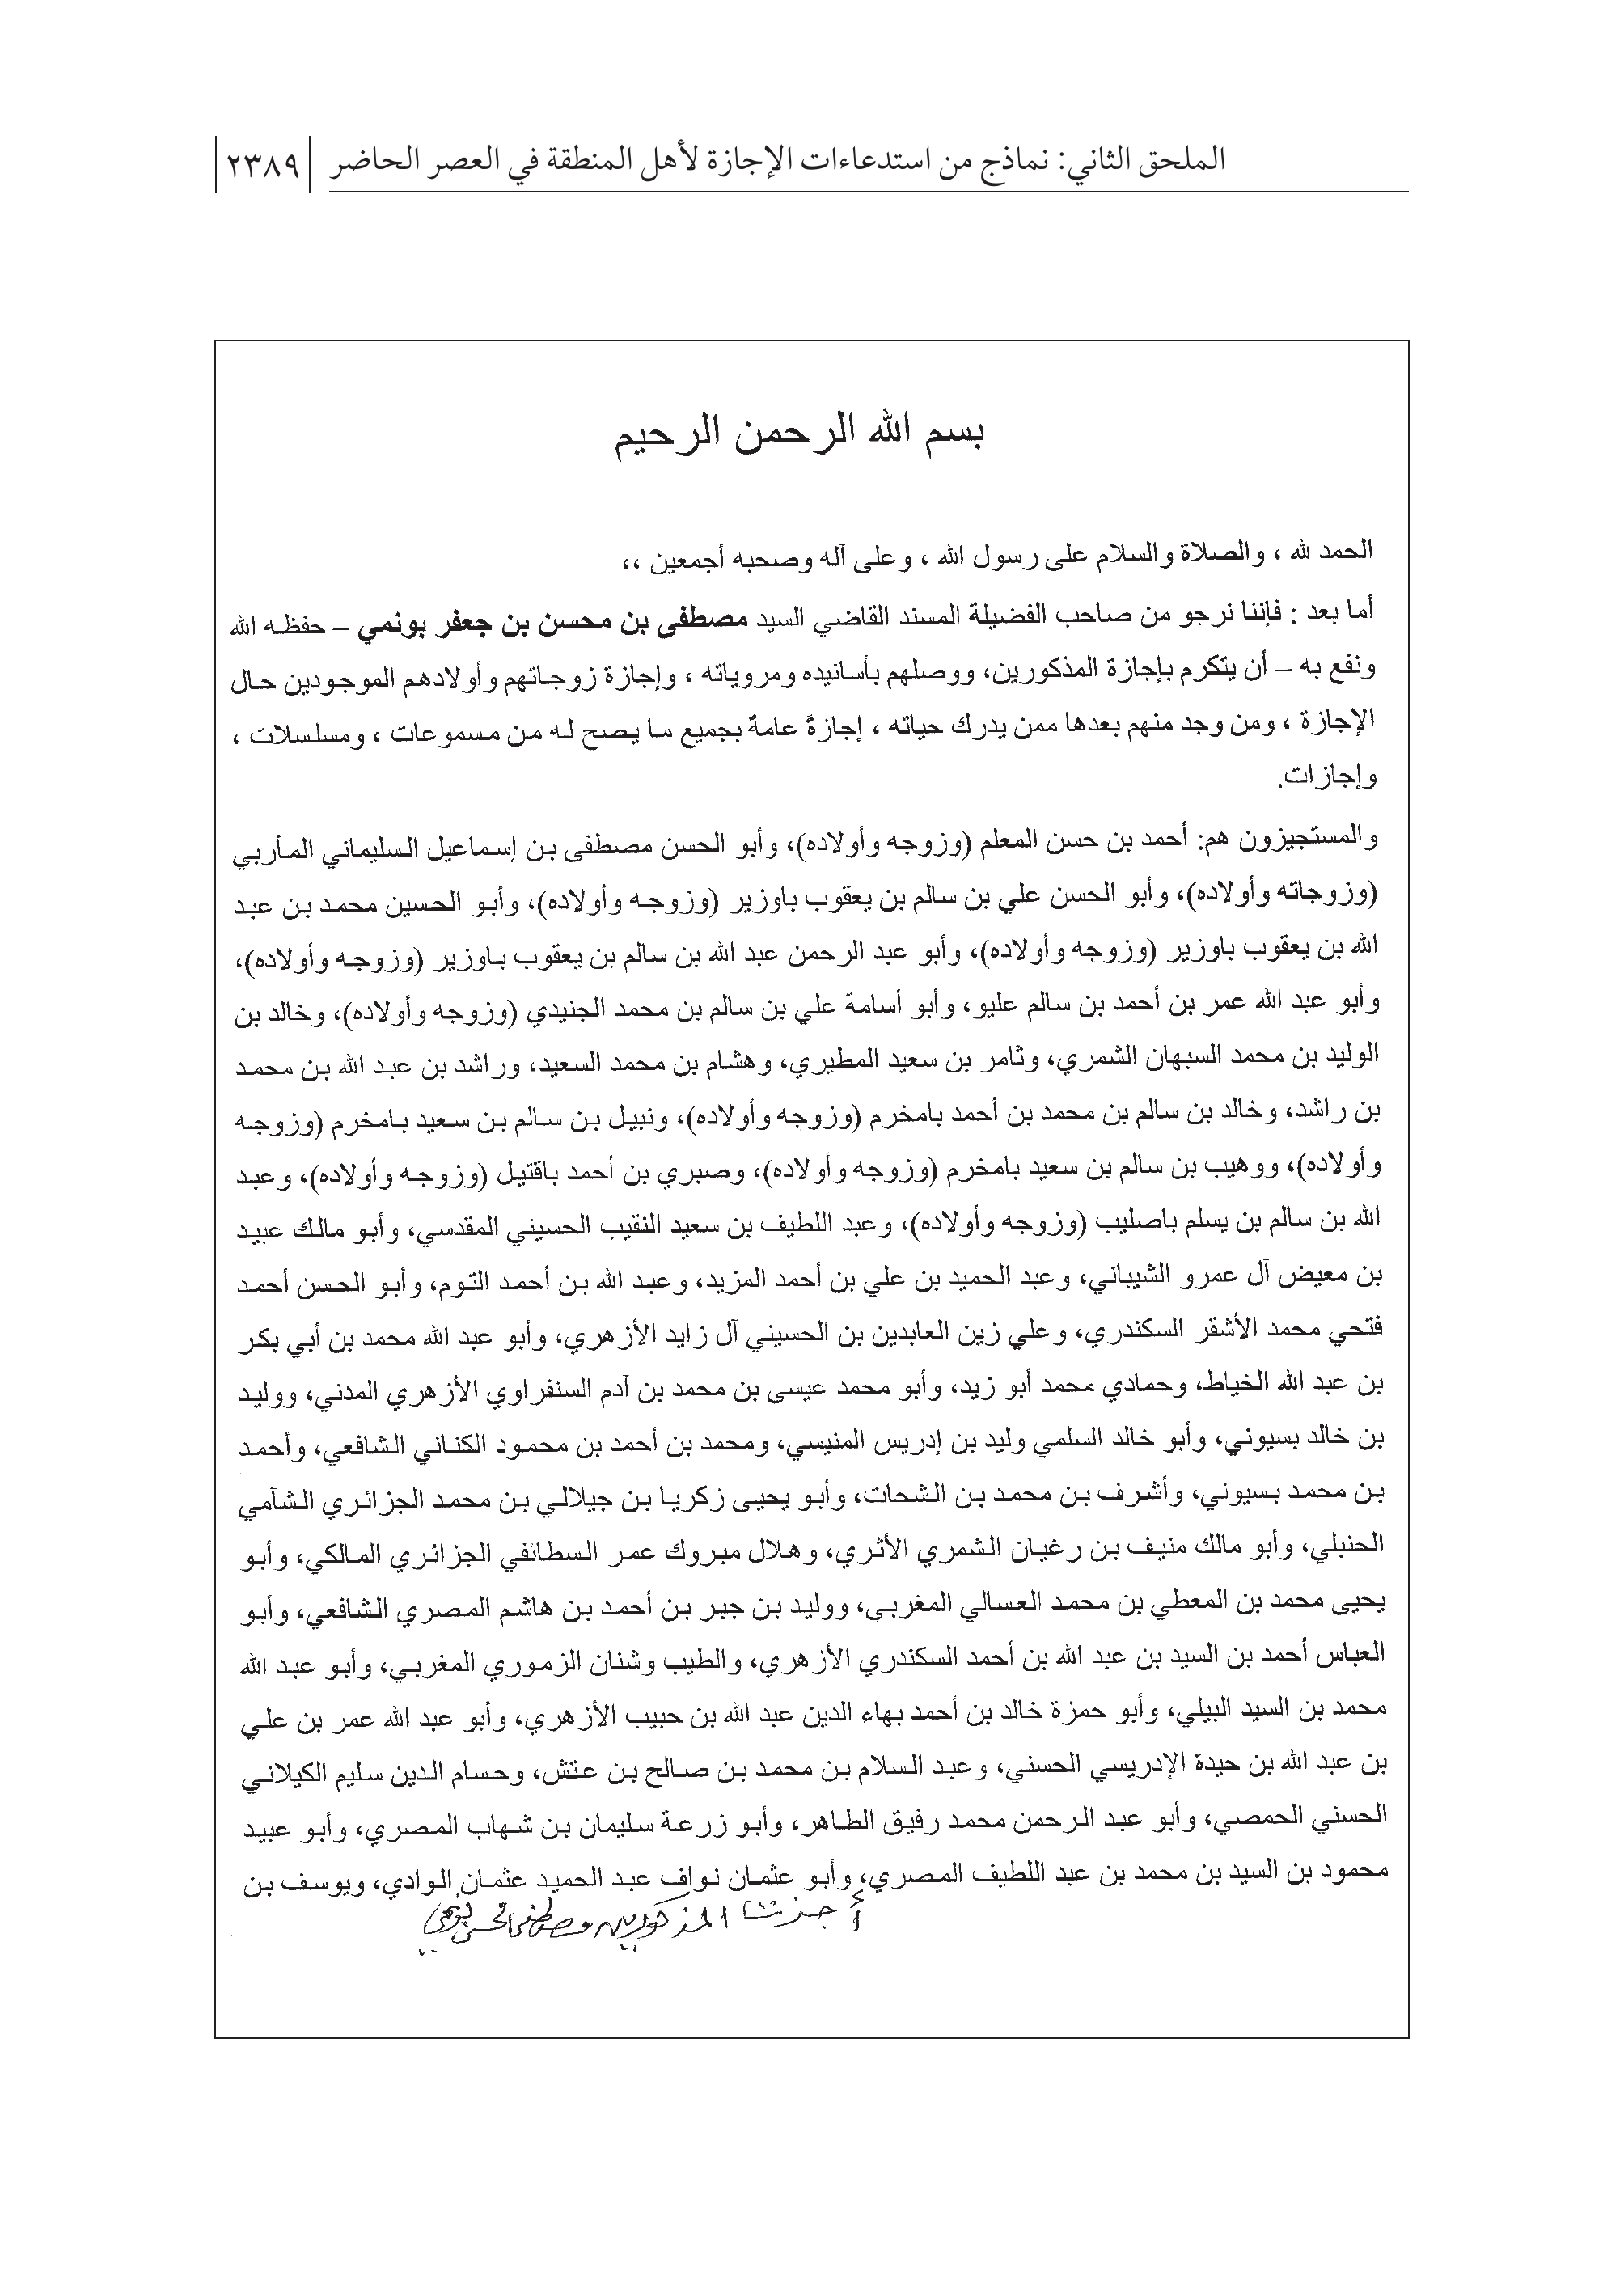 الملحق الثاني: نماذج من استدعاءات الإجازة لأهل المنطقة في العصر الحاضر ٢٣٨٩
بسم الله الرحمن الرحيم
الحمد لله ، والصلاة والسلام على رسول الله ، وعلى آله وصحبه أجمعين ،،
أما بعد : فإننا نرجو من صاحب الفضيلة المسند القاضي السيد مصطفى بن محسن بن جعفر بونمي – حفظه الله
ونفع به – أن يتكرم بإجازة المذكورين، ووصلهم بأسانيده ومروياته ، وإجازة زوجاتهم وأولادهم الموجودين حال
الإجازة ، ومن وجد منهم بعدها ممن يدرك حياته ، إجازةً عامةً بجميع ما يصح له من مسموعات ، ومسلسلات ،
وإجازات.
والمستجيزون هم: أحمد بن حسن المعلم (وزوجه وأولاده)، وأبو الحسن مصطفى بن إسماعيل السليماني المأربي
(وزوجاته وأولاده)، وأبو الحسن علي بن سالم بن يعقوب باوزير (وزوجه وأولاده)، وأبو الحسين محمد بن عبد
الله بن يعقوب باوزير (وزوجه وأولاده)، وأبو عبد الرحمن عبد الله بن سالم بن يعقوب باوزير (وزوجه وأولاده)،
وأبو عبد الله عمر بن أحمد بن سالم عليو، وأبو أسامة علي بن سالم بن محمد الجنيدي (وزوجه وأولاده)، وخالد بن
الوليد بن محمد السبهان الشمري، وثامر بن سعيد المطيري، وهشام بن محمد السعيد، وراشد بن عبد الله بن محمد
بن راشد، وخالد بن سالم بن محمد بن أحمد بامخرم (وزوجه وأولاده)، ونبيل بن سالم بن سعيد بامخرم (وزوجه
وأولاده)، ووهيب بن سالم بن سعيد بامخرم (وزوجه وأولاده)، وصبري بن أحمد باقتيل (وزوجه وأولاده)، وعبد
الله بن سالم بن يسلم باصليب (وزوجه وأولاده)، وعبد اللطيف بن سعيد النقيب الحسيني المقدسي، وأبو مالك عبيد
بن معيض آل عمرو الشيباني، وعبد الحميد بن علي بن أحمد المزيد، وعبد الله بن أحمد التوم، وأبو الحسن أحمد
فتحي محمد الأشقر السكندري، وعلي زين العابدين بن الحسيني آل زايد الأزهري، وأبو عبد الله محمد بن أبي بكر
بن عبد الله الخياط، وحمادي محمد أبو زيد، وأبو محمد عيسى بن محمد بن آدم السنفراوي الأزهري المدني، ووليد
بن خالد بسيوني، وأبو خالد السلمي وليد بن إدريس المنيسي، ومحمد بن أحمد بن محمود الكناني الشافعي، وأحمد
بن محمد بسيوني، وأشرف بن محمد بن الشحات، وأبو يحيى زكريا بن جيلالي بن محمد الجزائري الشآمي
الحنبلي، وأبو مالك منيف بن رغيان الشمري الأثري، وهلال مبروك عمر السطائفي الجزائري المالكي، وأبو
يحيى محمد بن المعطي بن محمد العسالي المغربي، ووليد بن جبر بن أحمد بن هاشم المصري الشافعي، وأبو
العباس أحمد بن السيد بن عبد الله بن أحمد السكندري الأزهري، والطيب وشنان الزموري المغربي، وأبو عبد الله
محمد بن السيد البيلي، وأبو حمزة خالد بن أحمد بهاء الدين عبد الله بن حبيب الأزهري، وأبو عبد الله عمر بن علي
بن عبد الله بن حيدة الإدريسي الحسني، وعبد السلام بن محمد بن صالح بن عتش، وحسام الدين سليم الكيلاني
الحسني الحمصي، وأبو عبد الرحمن محمد رفيق الطاهر، وأبو زرعة سليمان بن شهاب المصري، وأبو عبيد
محمود بن السيد بن محمد بن عبد اللطيف المصري، وأبو عثمان نواف عبد الحميد عثمان الوادي، ويوسف بن
أجزت المذكورين مصطفى محسن بونمي